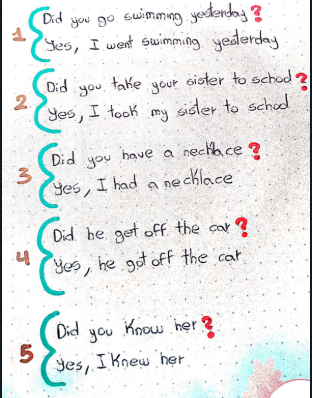 1 Did you go swimming yesterday?
Yes, I went swimming yesterday
2 Did you take your sister to school?
Yes, I took my sister to school
3 Did you have a necklace?
Yes, I had a necklace
4 Did he get off the car?
Yes, he got off the car
5 Did you Know her?
Yes, I Knew her